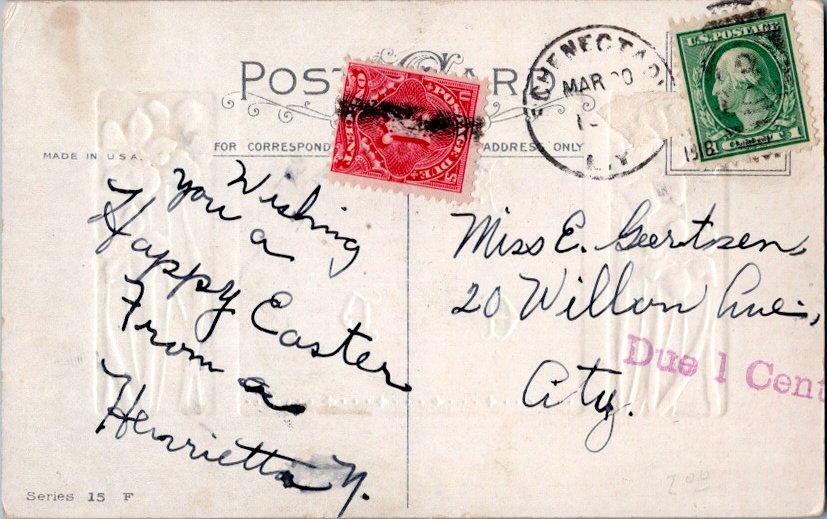 POST CARD
MADE IN U.S.A.
FOR CORRESPOND
ADDRESS ONLY
POSTAGE DUE
ONE CENT
SCHENECTADY
MAR 20
N.Y.
1918
U.S. POSTAGE
1
Wishing
you a
Happy Easter
From a
Henrietta N.
Miss E. Geertsen,
20 Willow Ave.,
City.
Due 1 Cent
200
Series 15 F